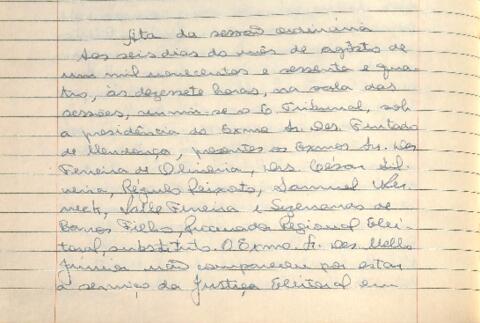 Ata da sessão ordinária
Aos seis dias do mês de agôsto de
um mil novecentos e sessenta e qua-
tro, às dezessete horas, na sala das
sessões, reuniu-se o E. Tribunal, sob
a presidência do Exmo. Sr. Des. Furtado
de Mendonça, presentes os Exmos. Srs. Des.
Ferreira de Oliveira, Drs. César Sil-
veira, Régulo Peixoto, Samuel Wer-
neck, Valle Ferreira e Sizenando de
Barros Filho, Procurador Regional Elei-
toral, substituto. O Exmo. Sr. Des. Mello
Júnior não compareceu por estar
a serviço da Justiça Eleitoral em